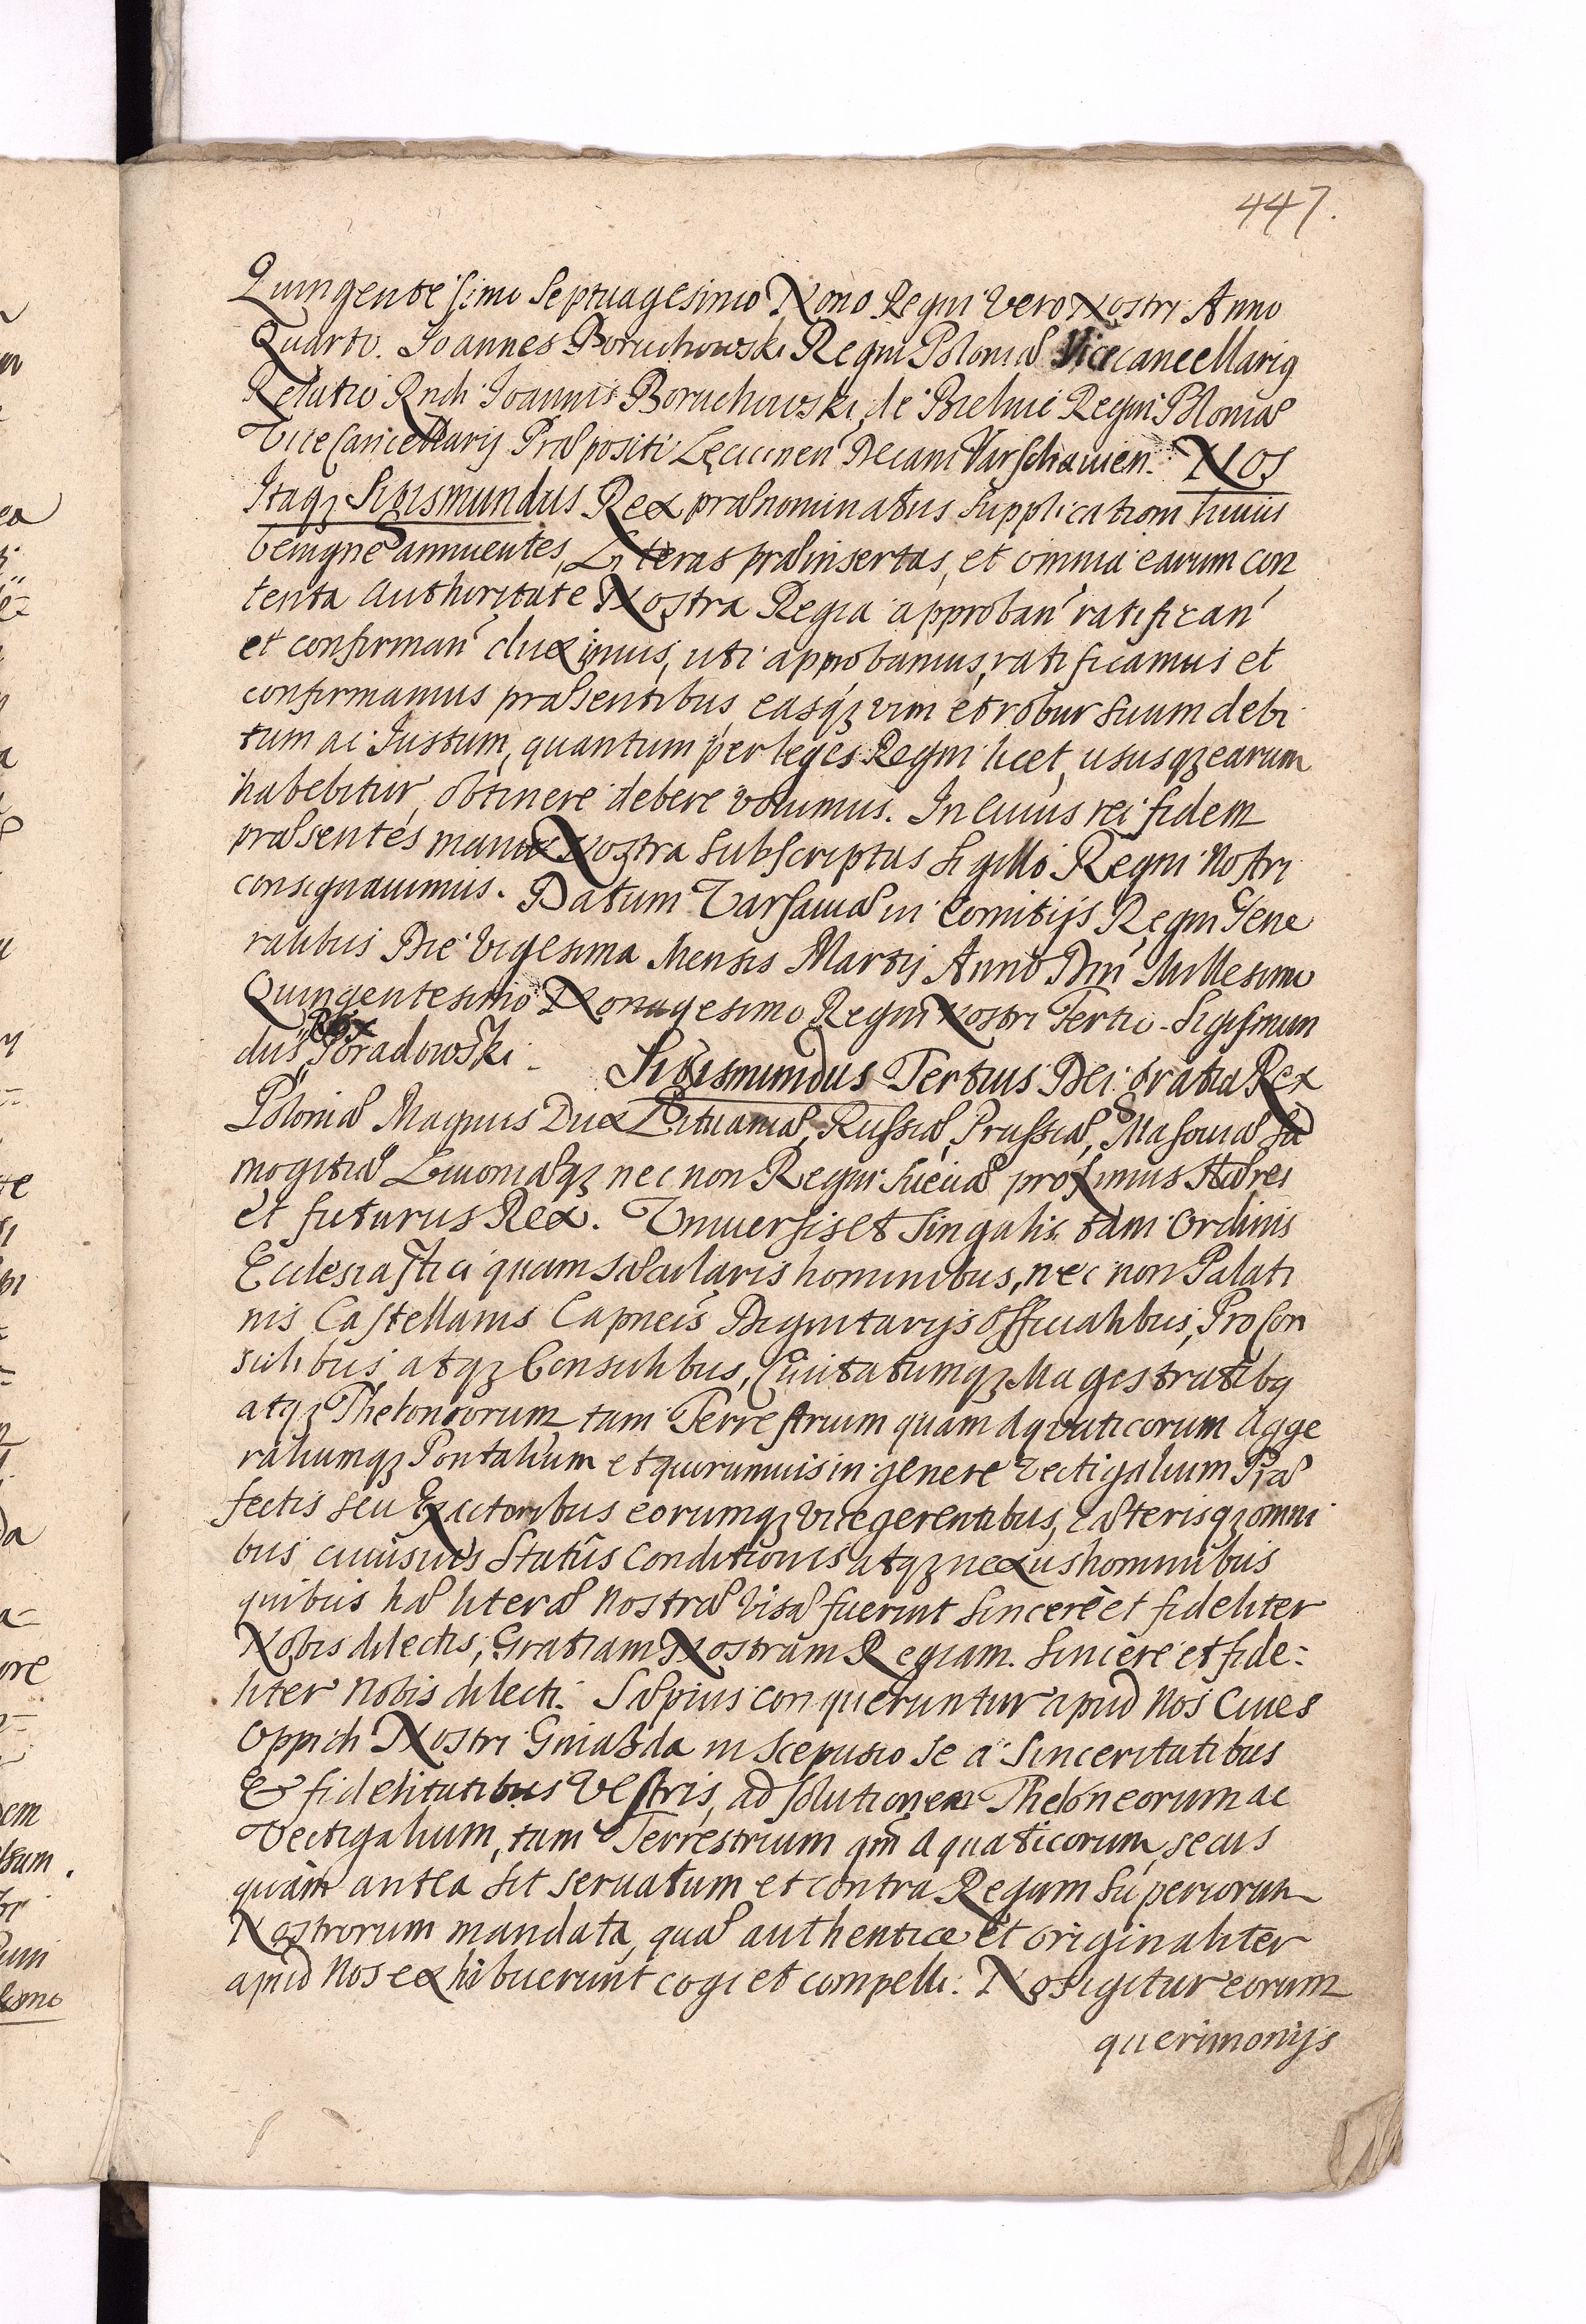 447.
Quingentesimo Septuagesimo Nono Regni vero Nostri Anno
Quarto. Joannes Boruchowski Regni Poloniæ Vicecancellariq
Relatio Rndi Joannis Boruchowski, de Bielini Regni Poloniæ
Vicecancellarij Præpositi Lęcicinen Decani Varschauien. Nos
Itaqz Sigismundus Rex prænominatus Supplicationi huius
benigne annuentes, Literas præinsertas, et omnia earum con
tenta Authoritate Nostra Regia approban ratifican
et confirman duximus, uti approbamus, ratificamus et
confirmamus præsentibus, easqz vim et robur suum debi
tum ac Justum, quantum per leges Regni licet, ususqz earum
habebitur, obtinere debere volumus. In cuius rei fidem
præsentes manu Nostra subscriptas Sigillo Regni Nostri
consignauimus. Datum Varsauiæ in Comitijs Regni Gene
ralibus Die Vigesima Mensis Martij Anno Dni Millesimo
Quingentesimo Nonagesimo Regni Nostri Tertio. Sigismun
dus Rex
Poradowski. Sigismundus Tertius Dei Gratia Rex
Poloniæ Magnus Dux Lituaniæ, Russiæ, Prussiæ, Masouiæ Sa
mogitiæ Liuoniæqz nec non Regni Sueciæ proximus Hæres
et futurus Rex. Vniuersis et Singulis, tam Ordinis
Ecclesiastici quam sæcularis hominibus, nec non Palati
nis Castellanis Capneis Dignitarijs Officialibus, Procon
sulibus, atqz Consulibus, Ciuitatumqz Magestratibq
atqz Theloneorum tam Terrestrium quam Aquaticorum Agge
raliumqz Pontalium et quorumuis in genere Vectigalium Præ
fectis seu Exactoribus eorumqz vicegerentibus, cæterisqz omni
bus cuiusuis Status Conditionis atqz nexus hominibus
quibus hæ literæ Nostræ visæ fuerint Sincere et fideliter
Nobis dilectis, Gratiam Nostram Regiam. Sincere et fide:
liter Nobis dilecti. Sæpius conqueruntur apud Nos Ciues
Oppidi Nostri Gniazda in Scepusio se a Sinceritatibus
& fidelitatibus Vestris, ad solutionem Theloneorum ac
Vectigalium, tam Terrestrium qm Aquaticorum, secus
quam antea sit seruatum et contra Regum Superiorum
Nostrorum mandata, quæ authentice et originaliter
apud Nos exhibuerunt cogi et compelli. Nos igitur eorum
querimonijs